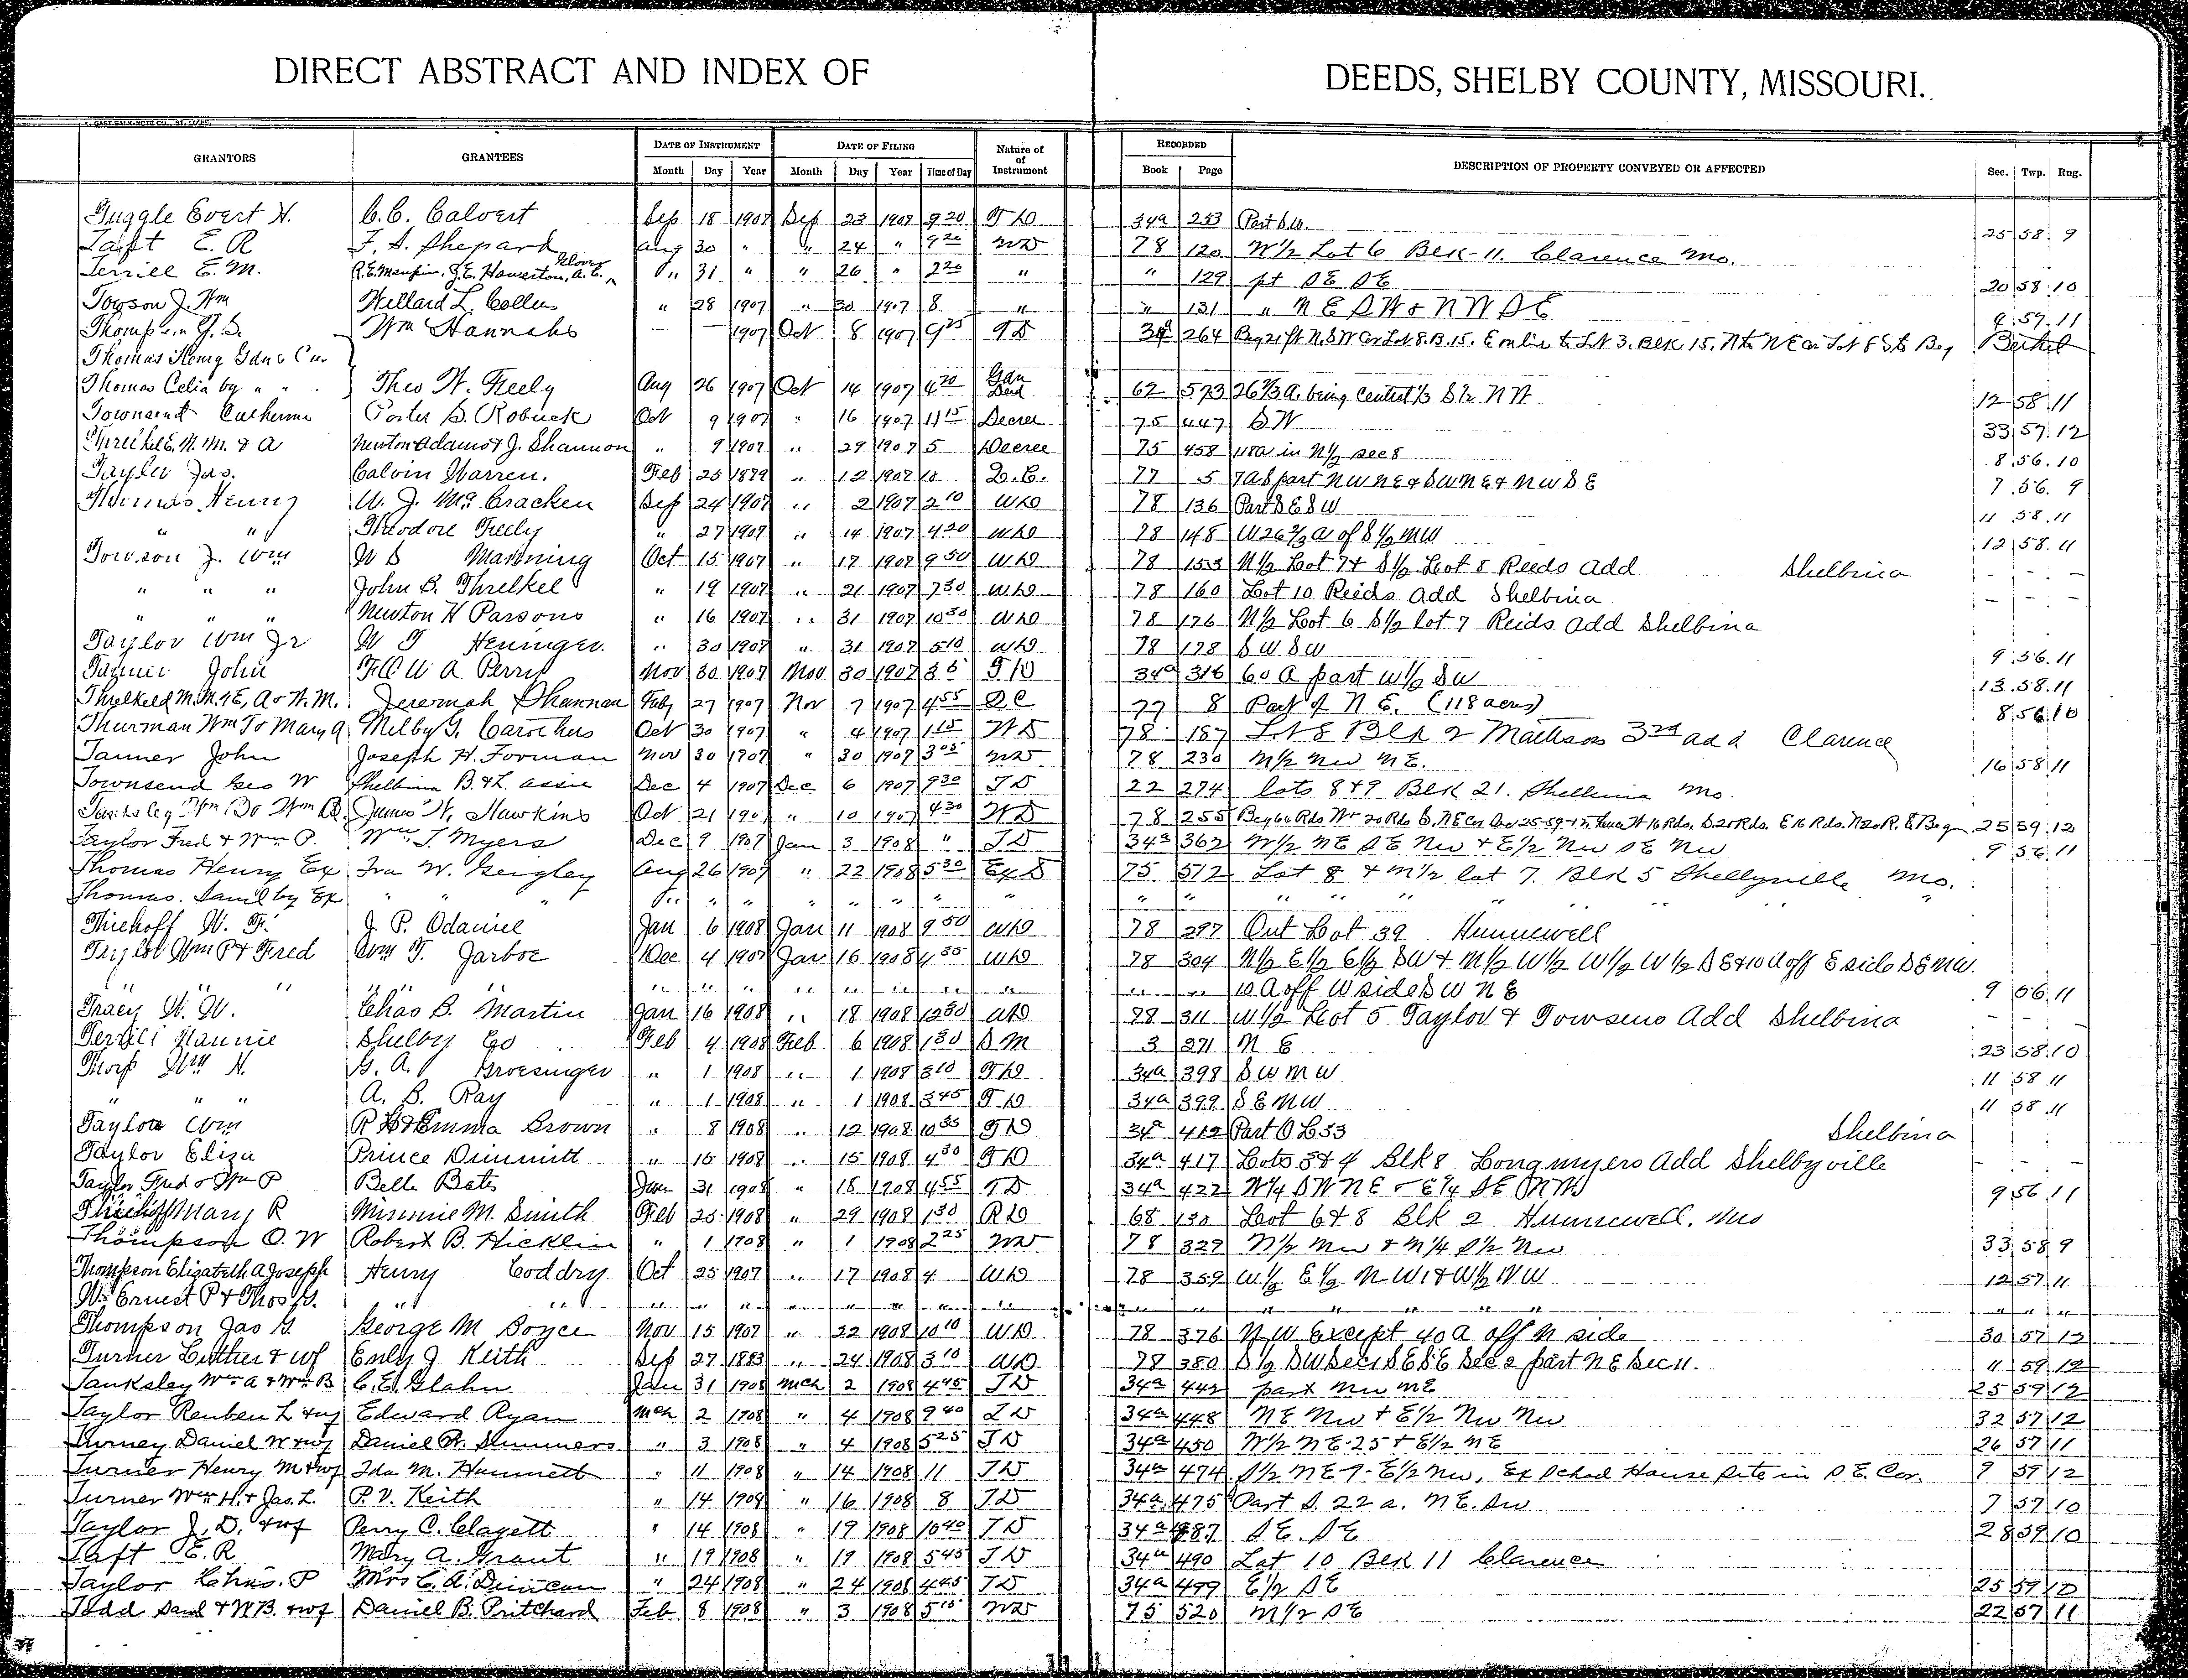 DIRECT ABSTRACT AND INDEX OF DEEDS, SHELBY COUNTY, MISSOURI.
GRANTORS GRANTEES DATE OF INSTRUMENT DATE OF FILING Nature of of Instrument RECORDED DESCRIPTION OF PROPERTY CONVEYED OR AFFECTED Sec. Twp. Rng.
Month Day Year Month Day Year Time of Day Book Page
Tuggle Evert H. C.C. Calvert Sep 18 1907 Sep 23 1907 9 20 T D 34a 253 Part S.W. 25 58 9
Taft E. R F. A. Shepard Aug 30 " " 24 " 9 20 WD 78 120 N 1/2 Lot 6 Blk-11. Clarence Mo.
Terrill E. M. R.E. Maupin, J.E. Hawerton, A.C. Glover " 31 " " 26 " 2 20 " " 129 pt SE SE 20 58 10
Towson J. Wm Willard L. Collens " 28 1907 " 30 1907 8 " " 131 " N E S W & N W S E 9 59 11
Thompson Wm Hannahs 1907 Oct 8 1907 9 25 T D 34a 264 Beg 21 ft N. S W Cor Lot 8. B. 15. E on line to Lot 3. Blk 15. N to N E Cor Lot 8 S to Beg Bethel
Thomas Henry Gdn & Cur
Thomas Celia by " " Theo W. Feely Aug 26 1907 Oct 14 1907 4 20 Gdn Deed 62 573 26 2/3 A. being Central 1/3 S 1/2 N W 12 58 11
Townsend Catherine Porter S. Robuck Oct 9 1907 " 16 1907 11 15 Decree 75 447 S W 33 57 12
Threlkeld M. M. & A Newton Adams & J. Shannon " 9 1907 " 29 1907 5 Decree 75 458 118 a in N 1/2 Sec 8 8 56 10
Taylor Jas. Calvin Warren. Feb 25 " 12 1907 Q. C. 77 5 7 A S part N W N E & S W N E & N W S E 7 56 9
Thomas Henry W. J. McCracken Sep 24 1907 " 2 1907 2 10 WD 78 136 Part S E S W 11 58 11
" " Theodore Feely " 27 1907 " 14 1907 4 20 WD 78 148 W 26 2/3 a of S 1/2 NW 12 58 11
Towson J. Wm W S Manning Oct 15 1907 " 17 1907 9 50 WD 78 153 N 1/2 Lot 7 & S 1/2 Lot 8 Reeds Add Shelbina - - -
" " " John B. Threlkel " 19 1907 " 21 1907 7 30 WD 78 160 Lot 10 Reids Add Shelbina - - -
" " " Newton H Parsons " 16 1907 " 31 1907 10 30 WD 78 176 N 1/2 Lot 6 S 1/2 lot 7 Reids Add Shelbina
Taylor Wm Jr W T Heninger " 30 1907 " 31 1907 5 10 WD 78 178 S W S W 9 56 11
Tanner John F.C.W A Perry Nov 30 1907 Nov 30 1907 3 5 T D 34a 316 60 A part W 1/2 S W 13 58 11
Threlkeld M.M. & E, A & W. M. Jeremiah Shannon Feby 27 1907 Nov 7 1907 4 55 Q C 77 8 Part of N E. (118 acres) 8 56 10
Thurman Wm T & Mary A. Melby G. Carothers Oct 30 1907 " 4 1907 1 15 W D 78 187 Lot 8 Blk 2 Mattison 3rd add Clarence
Tanner John Joseph H. Forman Nov 30 1907 " 30 1907 3 05 WD 78 230 N 1/2 NW N E. 16 58 11
Townsend Geo W Shelbina B. & L. Assn Dec 4 1907 Dec 6 1907 9 30 T D 22 274 lots 8 & 9 Blk 21. Shelbina Mo.
James W. Hawkins Oct 21 1907 " 10 1907 4 30 W D 78 255 25 59 12
Taylor Fred & Wm P. Wm T. Myers Dec 9 1907 Jan 3 1908 " T D 34a 362 W 1/2 N E S E NW & E 1/2 NW S E NW 9 56 11
Thomas Henry Ex Ira W. Geigley Aug 26 1907 " 22 1908 5 30 Ex D 75 512 Lot 8 & N 1/2 lot 7. Blk 5 Shelbyville Mo.
Thomas. Saml by Ex " " " " " " " " " " " " " " " " "
Thiehoff W. F. J. P. Odaniel Jan 6 1908 Jan 11 1908 9 50 WD 78 297 Out Lot 39 Hunnewell
Taylor Wm P & Fred Wm T. Jarboe Dec 4 1907 Jan 16 1908 4 35 WD 78 304 N 1/2 E 1/2 E 1/2 S W & N 1/2 W 1/2 W 1/2 W 1/2 S E & 10 A off E side S E NW.
" " " " " " " " " " " " " " " 10 A off W side S W N E 9 56 11
Tracy W. W. Chas B. Martin Jan 16 1908 " 18 1908 12 30 WD 78 311 W 1/2 Lot 5 Taylor & Towsens Add Shelbina - - -
Terrill Nannie Shelby Co Feb 4 1908 Feb 6 1908 1 30 S M 3 371 N E 23 58 10
Thorp Wm H. G. A. Groesinger " 1 1908 " 1 1908 3 10 T D 34a 398 S W N W 11 58 11
" " " A. B. Ray " 1 1908 " 1 1908 3 45 T D 34a 399 S E N W 11 58 11
Taylor Wm R H & Emma Brown " 8 1908 " 12 1908 10 35 T D 34a 412 Part O L 53 Shelbina
Taylor Eliza Prince Dimmitt " 15 1908 " 15 1908 4 30 T D 34a 417 Lots 3 & 4 Blk 8 Longmyers Add Shelbyville - - -
Taylor Fred & Wm P Belle Bates Jan 31 1908 " 18 1908 4 55 T D 34a 422 W 1/4 S W N E & E 1/4 S E N W 9 56 11
Thiehoff Mary R Minnie M. Smith Feb 25 1908 " 29 1908 1 30 R D 68 130 Lot 6 & 8 Blk 2 Hunnewell, Mo
Thompson O. W Robert B. Hicklin " 1 1908 " 1 1908 2 25 WD 78 329 N 1/2 NW & N 1/4 S 1/2 NW 33 58 9
Thompson Elizabeth A Joseph Henry Coddry Oct 25 1907 " 17 1908 4 WD 78 359 W 1/2 E 1/2 N W 1 & W 1/2 N W 12 57 11
W. Ernest P & Thos G. " " " " " " " " " " " " " " " " " " "
Thompson Jas G. George M Boyce Nov 15 1907 " 22 1908 10 10 WD 78 376 N W Except 40 A off N side 30 57 12
Turner Luther & wf Emly J Keith Sep 27 1883 " 24 1908 3 10 WD 78 380 S 1/2 S W Sec 1 S E S E Sec 2 part N E Sec 11. 11 59 12
Tanksley Wm A & Wm B C. E. Glahn Jan 31 1908 Mch 2 1908 4 45 T D 34a 442 part NW NE 25 59 12
Taylor Reuben L & wf Edward Ryan Mch 2 1908 " 4 1908 9 40 T D 34a 448 N E NW & E 1/2 NW NW 32 57 12
Turney Daniel W & wf Daniel W. Summers " 3 1908 " 4 1908 5 25 T D 34a 450 W 1/2 N E 25 & E 1/2 N E 26 57 11
Turner Henry M & wf Ida M. Hammett " 11 1908 " 14 1908 11 T D 34a 474 S 1/2 N E 9 - E 1/2 NW, Ex School House Site in S E. Cor. 9 59 12
Turner Wm H. & Jas. L. P. V. Keith " 14 1908 " 16 1908 8 T D 34a 475 Part S. 22 a. N E. SW 7 57 10
Taylor J. D. & wf Perry C. Clagett " 14 1908 " 19 1908 10 40 T D 34a 487 S E. S E 28 59 10
Taft E. R Mary A. Grant " 19 1908 " 19 1908 5 45 T D 34a 490 Lot 10 Blk 11 Clarence
Taylor Chas. P Mrs C. A. Duncan " 24 1908 " 24 1908 4 45 T D 34a 499 E 1/2 S E 25 59 12
Todd Saml & W B. & wf Daniel B. Pritchard Feb 8 1908 " 3 1908 5 15 WD 75 520 N 1/2 S E 22 57 11